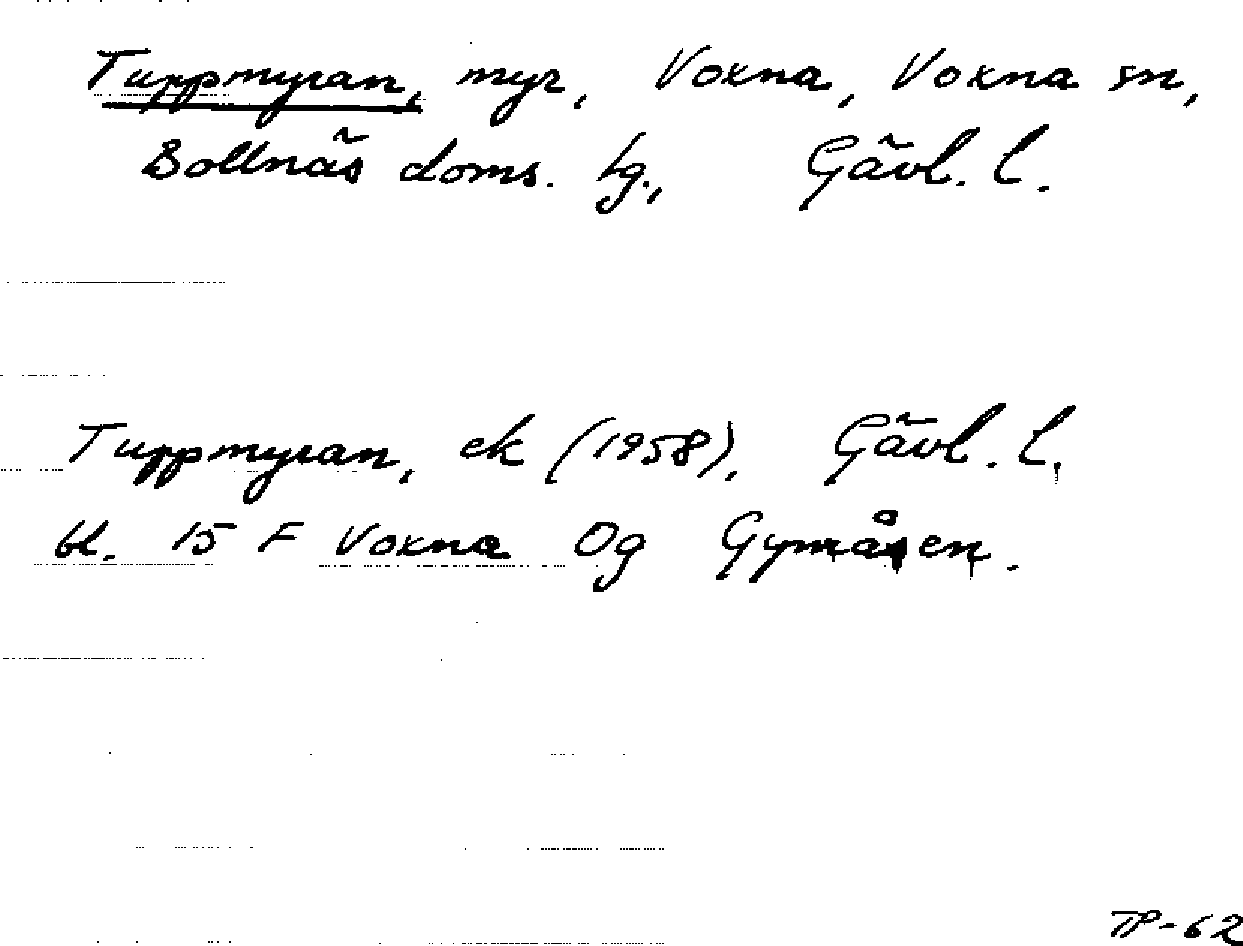 Tuppmyran, myr, Voxna, Voxna sn,
Bollnäs doms. tg., Gävl. l.
Tuppmyran, ek (1958), Gävl. l.
bl. 15 F Voxna Og Gymåsen.
TP-62